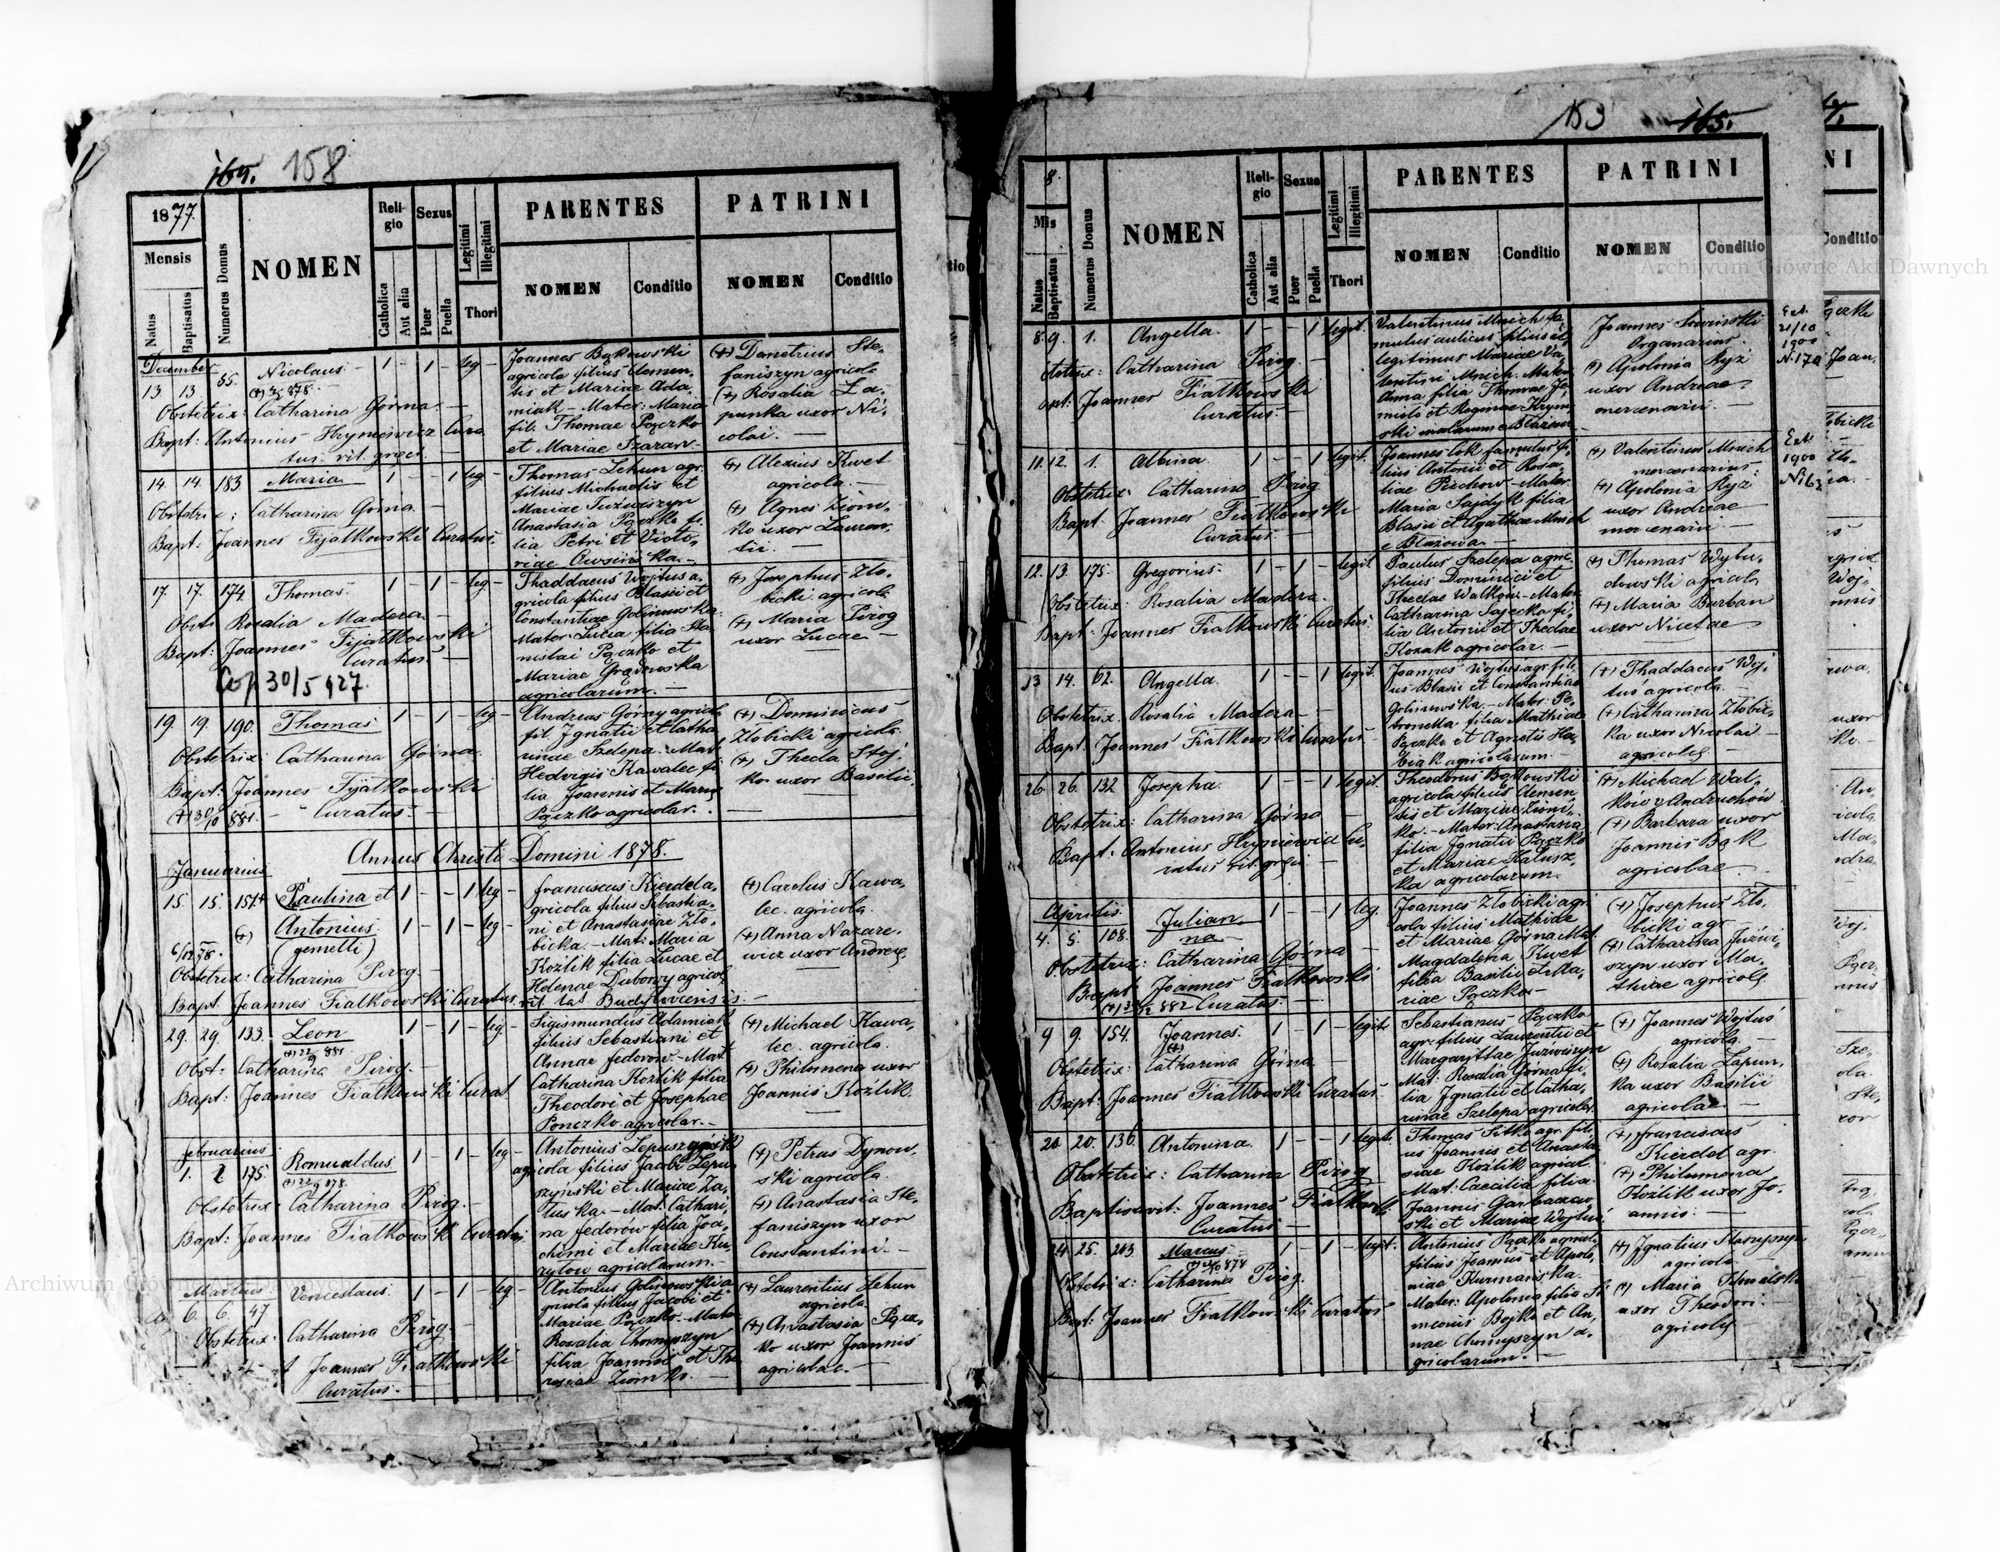 164. 158
1877.
Mensis
Natus
Baptisatus
Numerus Domus
NOMEN
Reli-
gio
Catholica
Aut alia
Sexus
Puer
Puella
Legitimi
Illegitimi
Thori
PARENTES
NOMEN
Conditio
PATRINI
NOMEN
Conditio
December
13 13 85. Nicolaus 1 - 1 - leg -
Obstetrix: Catharina Górna. -
Bapt: Antonius Hryniewicz Cura
tus rit. graec. -
Joannes Bąkowski
agricola filius Clemen-
tis et Mariae Ada-
miak - Mater: Maria
fil. Thomae Pączko
et Mariae Szaran -
(+) Demetrius Ste-
faniszyn agricola
(+) Rosalia La-
punka uxor Ni-
colai. -
14 14 183 Maria 1 - - 1 leg -
Obstetrix: Catharina Górna. -
Bapt: Joannes Fijałkowski Curatus.
Thomas Lekun agr.
filius Michaelis et
Mariae Juzwiszyn
Anastasia Pączko fi-
lia Petri et Victo-
riae Owsieniska. -
(+) Alexius Kwet
agricola. -
(+) Agnes Ziom-
ko uxor Lauren-
tii. -
17 17. 174 Thomas. 1 - 1 - leg -
Obst: Rosalia Madera. -
Bapt: Joannes Fijałkowski
Curatus -
Cop. 30/5 927.
Thaddaeus Wojtus a-
gricola filius Blasii et
Constantiae Golinowska
Mater: Lucia filia Sta-
nislai Pączko et
Mariae Gradowska
agricolarum. -
(+) Josephus Zło-
bicki agricola
(+) Maria Pirog
uxor Lucae -
19. 19. 190. Thomas 1 - 1 - leg -
Obstetrix: Catharina Górna.
Bapt: Joannes Fijałkowski
Curatus. -
Andreas Górny agricola
fil. Ignatii et Catha
rinae Szelepa. Mat
Hedvigis Kawalec fi-
lia Joannis et Mariae
Pączko agricolar. -
(+) Dominicus
Złobicki agricola
(+) Thecla Stoj-
ko uxor Basilii
Annus Christi Domini 1878.
Januarius
15. 15. 151 Paulina et 1 - - 1 leg -
Antonius 1 - 1 - leg -
(gemelli)
Obstetrix: Catharina Pirog -
Bapt. Joannes Fiałkowski Curatus rit lat Budyłoviensis. -
Franciscus Kierdela-
gricola filius Sebastia-
ni et Anastasiae Zło-
bicka. - Mat: Maria
Koźlik filia Lucae et
Helenae Dubowy agricol
(+) Carolus Kawa-
lec. agricola.
(+) Anna Nazare-
wicz uxor Andreae
29. 29. 133. Leon 1 - 1 - leg -
Obst: Catharina Pirog. -
Bapt: Joannes Fiałkowski Curat.
Sigismundus Adamiak
filius Sebastiani et
Annae Fedorow. - Mat
Catharina Koźlik filia
Theodori et Josephae
Ponczko agricolar. -
(+) Michael Kawa-
lec. agricola.
(+) Philomena uxor
Joannis Koźlik.
Februarius
1. 2 175. Romualdus 1 - 1 - leg -
Obstetrix: Catharina Pirog. -
Bapt: Joannes Fiałkowski Curatus.
agricola filius Jacobi Lepu-
szyński et Mariae Ła-
tuska. - Mat: Cathari-
na Fedorów filia Joa-
chimi et Mariae Ku-
ryłow agricolarum. -
(+) Petrus Dynow-
ski agricola.
(+) Anastasia Ste-
faniszyn uxor
Constantini. -
Martius
6. 6. 47 Venceslaus. 1 - 1 - leg -
Obstetrix: Catharina Pirog. -
Joannes Fiałkowski
Curatus. -
Antonius Golinowski a
gricola filius Jacobi et
Mariae Pączko. - Mater
Rosalia Chomyszyn
filia Joannis et The
resiae Ziomko. -
(+) Laurentius Lekun
agricola
(+) Anastasia Pącz-
ko uxor Joannis
agricolae. -
153 165.
8.
Mis
Natus
Baptisatus
Numerus Domus
NOMEN
Reli-
gio
Catholica
Aut alia
Sexus
Puer
Puella
Legitimi
Illegitimi
Thori
PARENTES
NOMEN
Conditio
PATRINI
NOMEN
Conditio
8. 9. 1. Angella. 1 - - 1 legit.
Catharina Pirog. -
Joannes Fiałkowski
Curatus. -
Valentinus Mnich fa-
mulus aulicus filius et
legitimus Mariae Va-
lentini Mnich. Mater
Anna filia Thomae Ja-
Joannes Sowiński
Organarius.
(+) Apolonia Ryż
uxor Andreae
mercenarii. -
Ext.
21/10
1900
N. 170
11. 12. 1. Albina. 1 - - 1 legit.
Obstetrix: Catharina Pirog
Bapt: Joannes Fiałkowski
Curatus. -
Joannes Cok famulus fi-
lius Antonii et Rosa-
liae Piechow - Mater
Maria Sajdyk filia
Blasii et Agathae Mnich
e Błażowa. -
(+) Valentinus Mnich
mercenarius.
(+) Apolonia Ryż
uxor Andreae
mercenarii. -
Ext
1900
N 163
12. 13. 175. Gregorius. 1 - 1 - legit.
Obstetrix: Rosalia Madera.
Bapt: Joannes Fiałkowski Curatus.
Paulus Szelepa agric.
filius Dominici et
Theclae Walków - Mater
Catharina Sajecka fi-
lia Antonii et Theclae
Kozak agricolar. -
(+) Thomas Wybu-
dowski agricola
(+) Maria Burban
uxor Nicetae
13 14. 62. Angella. 1 - - 1 legit.
Obstetrix. Rosalia Madera -
Bapt. Joannes Fiałkowski Curatus -
Joannes Wojtus agr. fili-
us Blasii et Constantiae
Golinowska. - Mater: Pe-
tronella filia Mathiae
Pączko et Agnetis Ha-
biak agricolarum. -
(+) Thaddaeus Woj-
tus agricola. -
(+) Catharina Złobic-
ka uxor Nicolai -
agricolae -
26. 26. 132 Josepha. 1 - - 1 legit.
Obstetrix: Catharina Górna -
Bapt: Antonius Hryniewicz Cu-
ratus rit. graeci -
Theodorus Bąkowski
agricola filius Clemen-
tis et Mariae Ziom-
ko. - Mater: Anastasia
filia Ignatii Pączko
et Mariae Kałusz-
ka agricolarum. -
(+) Michael Wal-
ków z Andruchów
(+) Barbara uxor
Joannis Bąk
agricolae. -
Aprilis.
4. 5. 108. Julian-
na - 1 - - 1 leg.
Obstetrix: Catharina Górna -
Bapt: Joannes Fiałkowski
Curatus. -
Joannes Złobicki agri
cola filius Mathiae
et Mariae Górna Mat.
Magdalena Kwet
filia Basilii et Ma-
riae Pączko. -
(+) Josephus Zło-
bicki agr.
(+) Catharina Juzwi-
szyn uxor Ma-
thiae agricolae
9 9. 154. Joannes. 1 - 1 - legit.
(+)
Obstetrix: Catharina Górna. -
Bapt: Joannes Fiałkowski Curatus.
Sebastianus Pączko
agr. filius Laurentii et
Margarittae Juzwiszyn
Mat: Rosalia Górna fi-
lia Ignatii et Catha-
rinae Szelepa agricolar.
(+) Joannes Wojtus
agricola. -
(+) Rosalia Łapun-
ka uxor Basilii
agricolae. -
20. 20. 136. Antonina. 1 - - 1 legit.
Obstetrix: Catharina Pirog
Baptisavit: Joannes Fiałkowski
Curatus -
Thomas Sitko agr. fili-
us Joannis et Anasta-
siae Koźlik agricol.
Mat: Caecilia filia
Joannis Garbaczew-
ski et Mariae Wojtus.
(+) Franciscus
Kierdel agr.
(+) Philomena
Koźlik uxor Jo-
annis. -
24. 25. 203 Marcus. 1 - 1 - legit.
Obstetrix: Catharina Pirog.
Bapt: Joannes Fiałkowski Curatus
Antonius Pączko agricol.
filius Joannis et Apolo-
niae Kurmańska.
Mater: Apolonia filia Si-
meonis Bojko et An-
nae Chomyszyn a-
gricolarum. -
(+) Ignatius
agricola
(+) Maria
uxor Theodori
agricolae
NI
Conditio
Archiwum Główne Akt Dawnych
Archiwum Główne Akt Dawnych